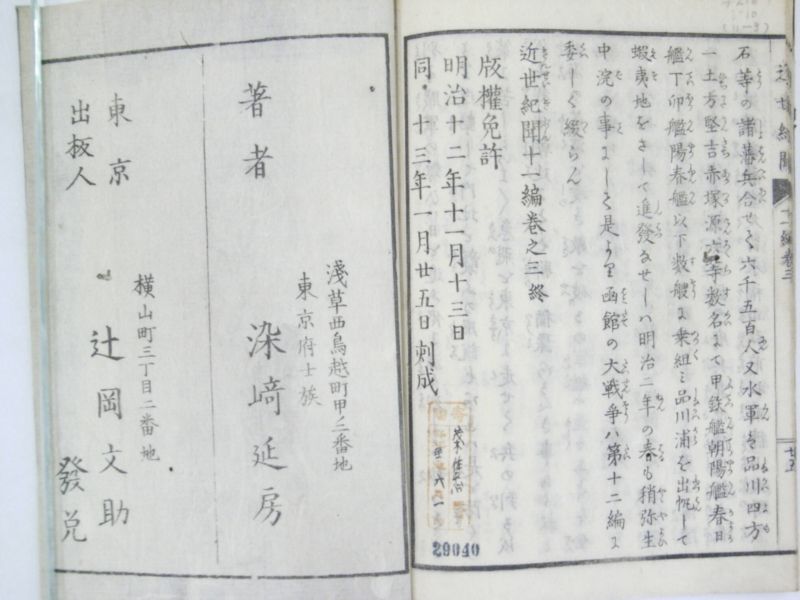 石等の諸藩兵合せて六千五百人又水軍を品川四方
一土方堅吉赤塚源六等数名にて甲鉄艦朝陽艦春日
艦丁卯艦陽春艦以下数艘に乗組ミ品川浦を出帆して
蝦夷地をさして進發なせしハ明治二年の春も稍弥生
中浣の事にして是より函館の大戦争ハ第十二編に
委しく綴らん
近世紀聞十一編巻之三終
版權免許
明治十二年十一月十三日
同十三年一月廿五日刺成
29040
著者
淺草西鳥越町甲二番地
東京府士族
染﨑延房
東京
出板人
横山町三丁目二番地
辻岡文助
發兌
近世紀聞
十一編巻三
廿五